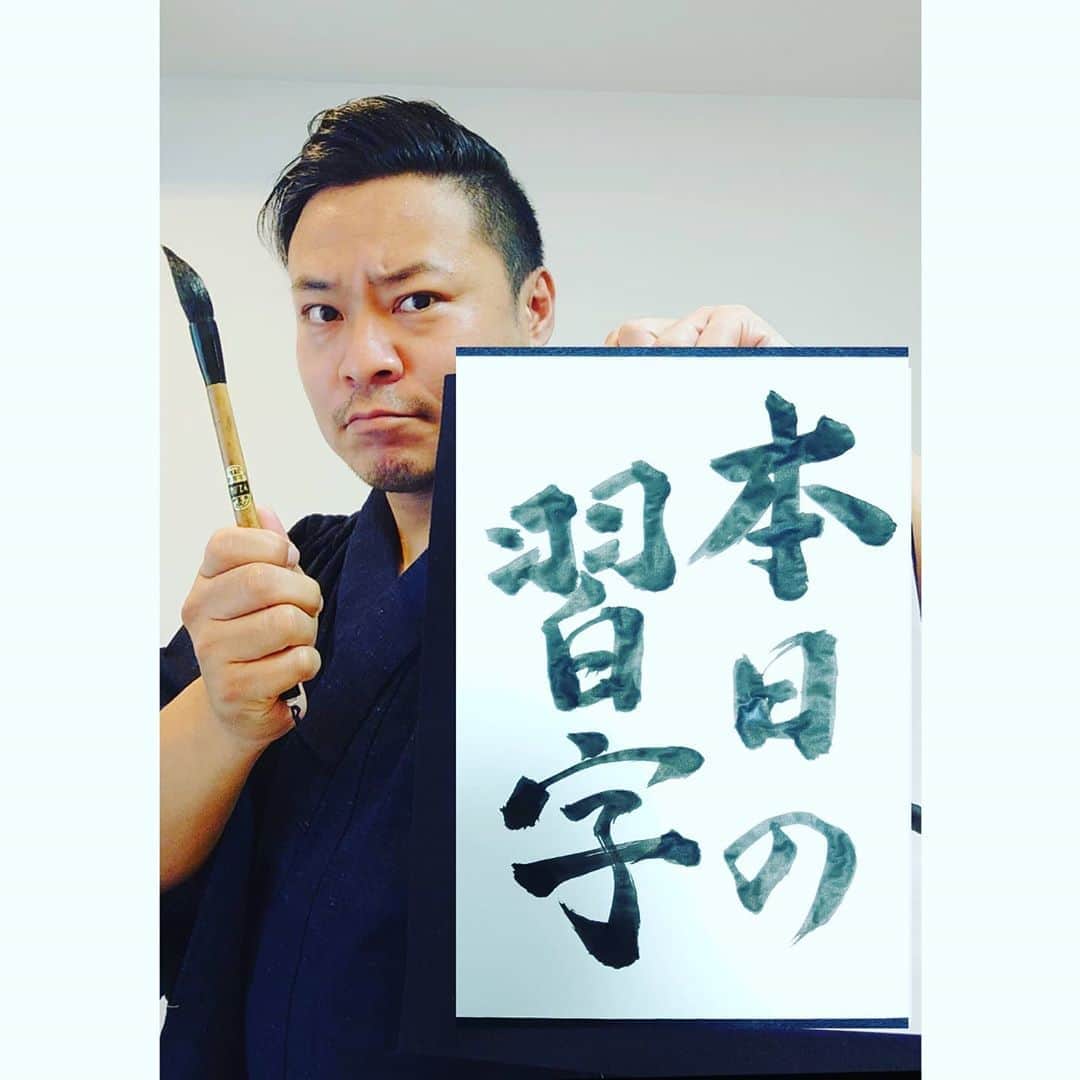 本日の
習字